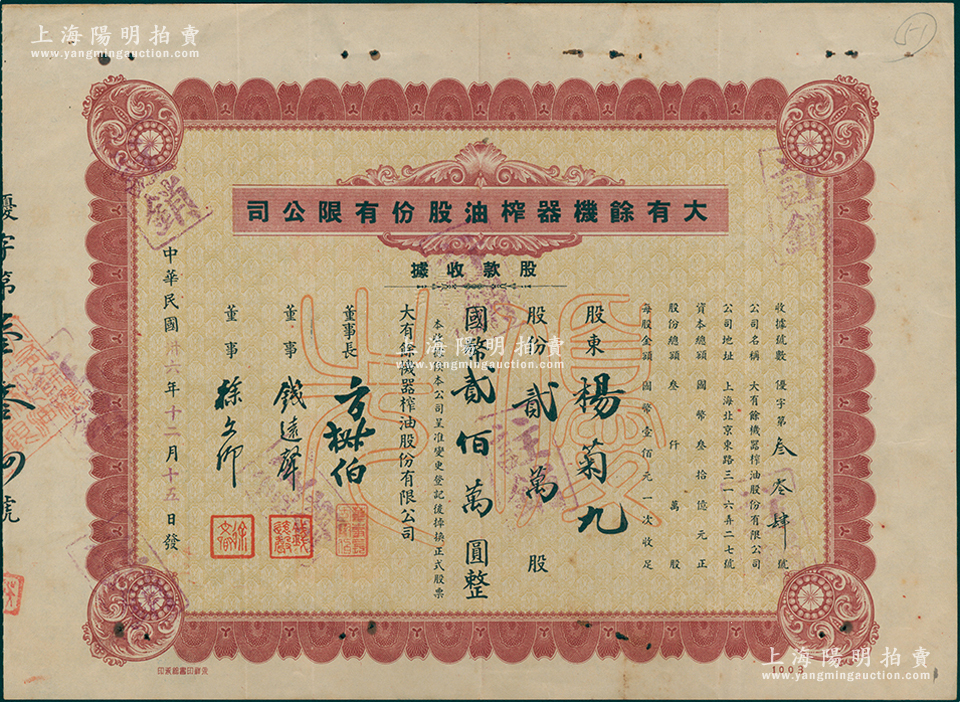 上海陽明拍賣
www.yangmingauction.com
上海陽明拍賣
www.yangmingauction.com
大有餘機器榨油股份有限公司
股款收據
收據號數 優字第叁叁肆號
公司名稱 大有餘機器榨油股份有限公司
公司地址 上海北京東路三一六弄二七號
資本總額 國幣叁拾億元正
股份總額 叁仟萬股
每股金額 國幣壹佰元一次收足
股東 楊菊九
股份貳萬股
國幣貳佰萬圓整
本收據俟本公司呈准變更登記後掉換正式股票
大有餘機器榨油股份有限公司
董事長 方樹伯
董事 錢遠聲
董事 徐文卿
中華民國卅六年十二月十五日發
註銷
上海陽明拍賣
www.yangmingauction.com
上海陽明拍賣
www.yangmingauction.com
上海陽明拍賣
www.yangmingauction.com
1003